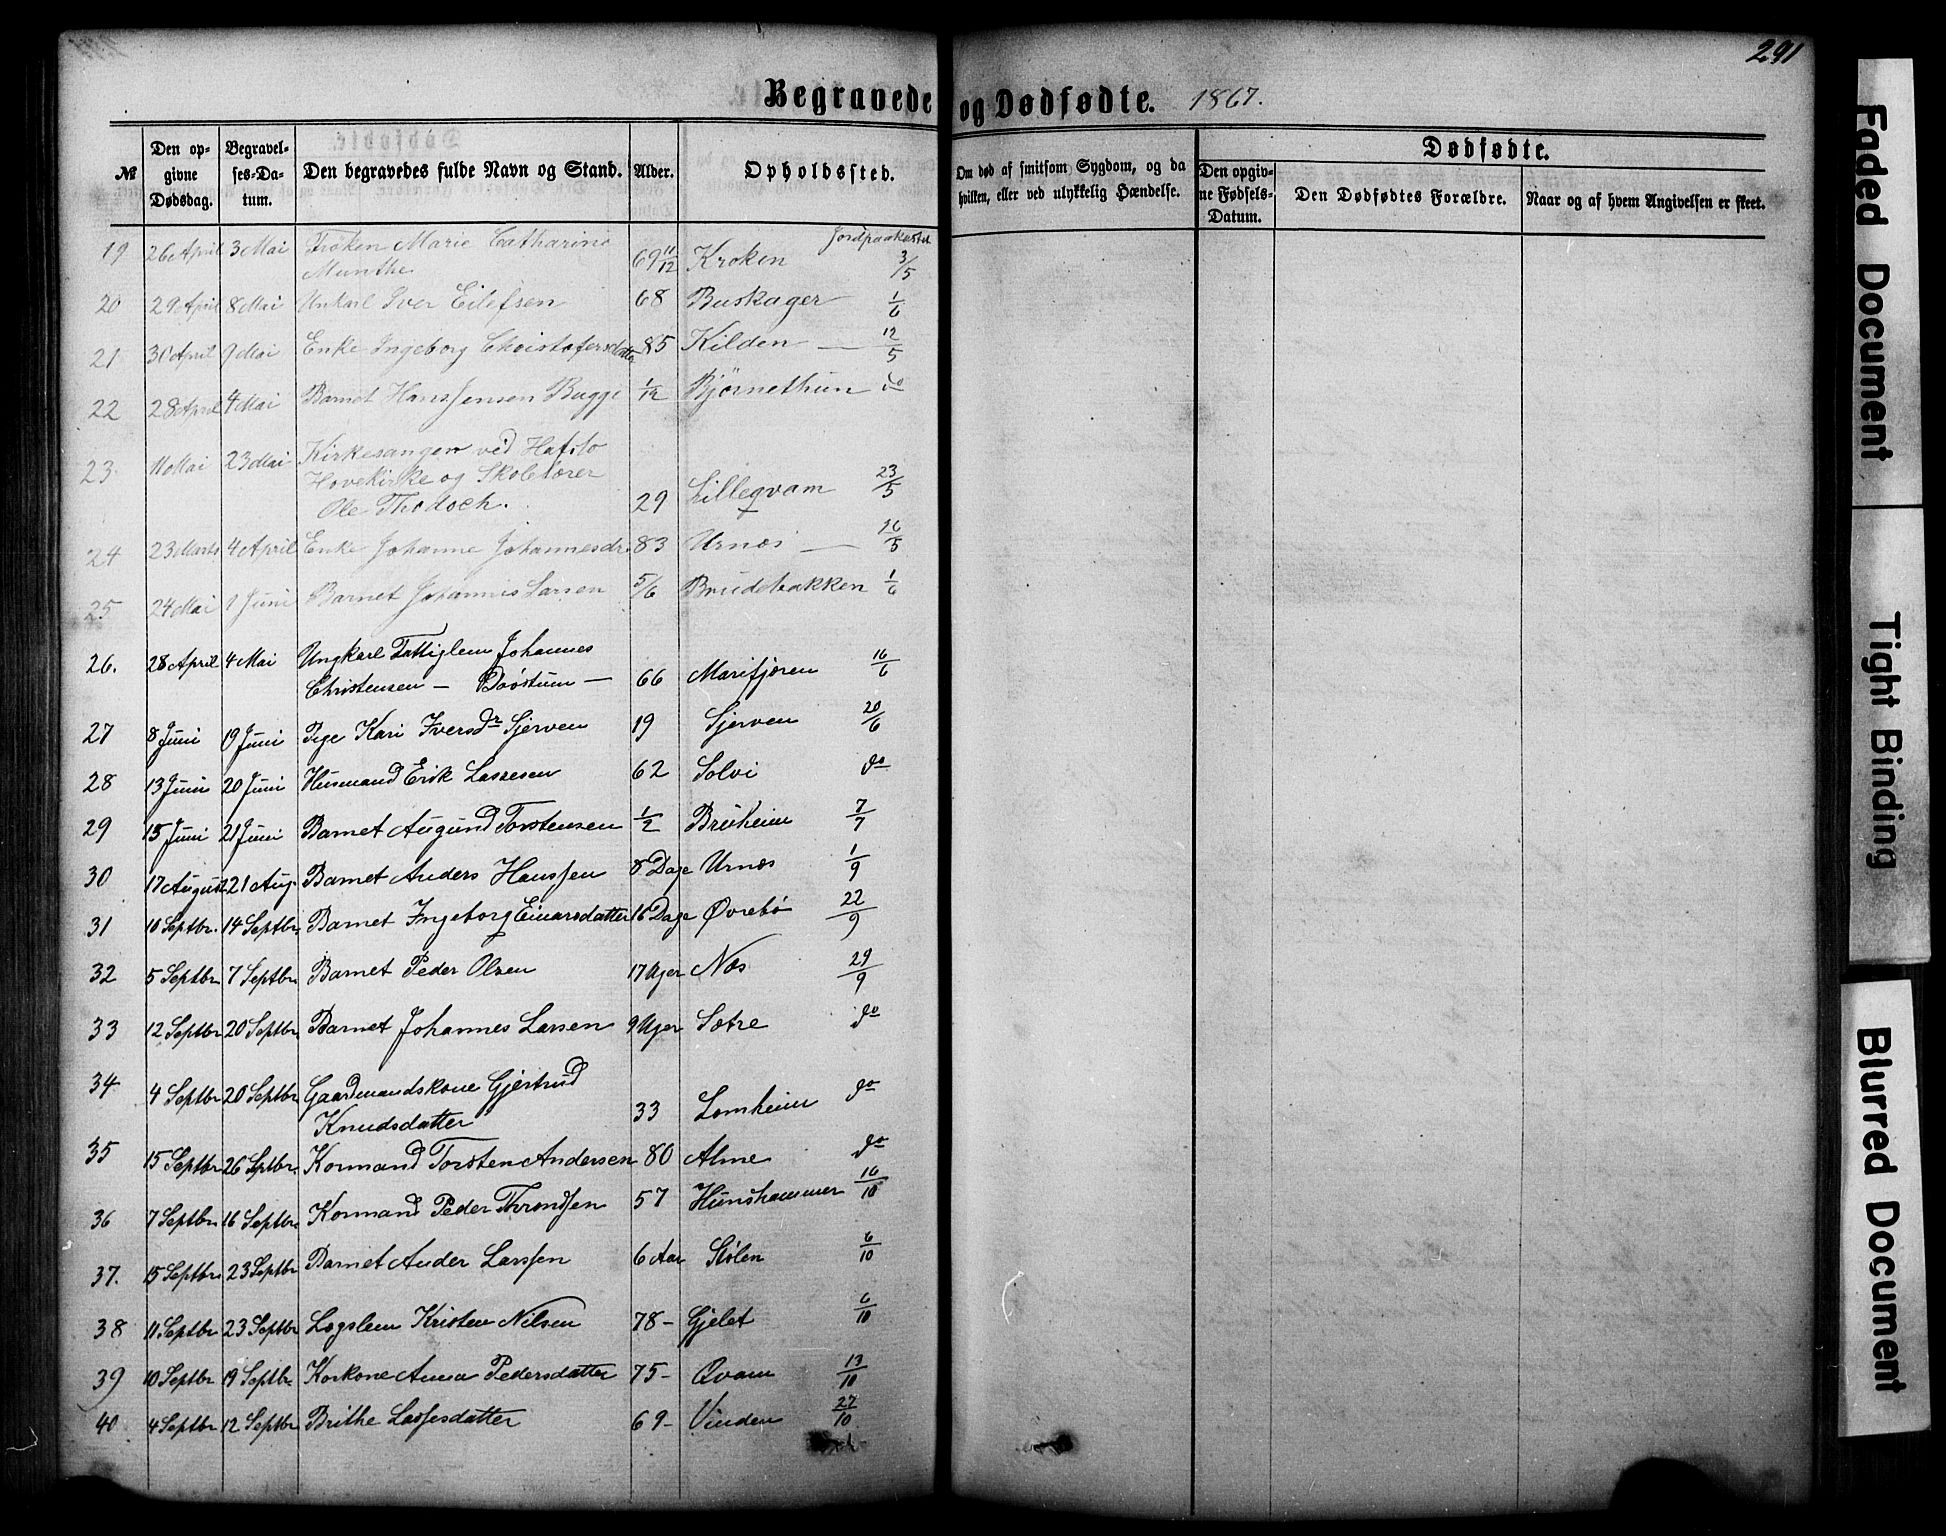 291
Begravede og Dødfødte. 1867.
№ Den opgivne Dødsdag. Begravelses-Datum. Den begravedes fulde Navn og Stand. Alder. Opholdssted. Om død af smitsom Sygdom, og da hvilken, eller ved ulykkelig Hændelse. Dødfødte. Den opgivne Fødsels-Datum. Den Dødfødtes Forældre. Naar og af hvem Angivelsen er skeet.
Jordpaakastet
19 26 April 3 Mai Frøken Marie Catharine
Munthe 69 11/12 Kroken 3/5
20 29 April 8 Mai Unkarl Iver Eilefsen 68 Buskager 1/6
21 30 April 9 Mai Enke Ingeborg Christofersdatter 85 Kilden — 12/5
22 28 April 4 Mai Barnet Hans Jensen Bugge 1/12 Bjørnethun do
23. 11 Mai 23 Mai Kirkesanger ved Hafslo
Hovekirke og Skolelærer
Ole Thodoch. 29 Lillegvam 23/5
24 23 Marts 4 April Enke Johanne Johannesdr 83 Urnes — 16/5
25 24 Mai 1 Juni Barnet Johannes Larsen 5/6 Brudebakken 1/6
26. 28 April 4 Mai Ungkarl Fattiglem Johannes
Christensen — — 66 Marifjøren 16/6
27 8 Juni 19 Juni Pige Kari Iversdr Sjerven 19 Sjerven 20/6
28 13 Juni 20 Juni Husmand Erik Lassesen 62 Solvi do
29 15 Juni 21 Juni Barnet Augund Torstensen 1/2 Bruheim 7/7
30 17 August 21 Aug. Barnet Anders Hanssen 8 Dage Urnes 1/9
31 10 Septbr. 14 Septbr. Barnet Ingeborg Einarsdatter 16 Dage Øvrebø 22/9
32 5 Septbr 7 Septbr Barnet Peder Olsen 17 Uger Næs 29/9
33 12 Septbr 20 Septbr Barnet Johannes Larsen 9 Uger Sætre do
34 4 Septbr 20 Septbr Gaardmandskone Gjertrud
Knudsdatter 33 Lomheim do
35 15 Septbr 26 Sptbr. Kormand Torsten Andersen 80 Alme do
36 7 Septbr 16 Septbr Kormand Peder Throndsen 57 Hunshammer 16/10
37. 15 Septbr 23 Septbr Barnet Ander Larssen 6 Aar Stølen 6/10
38 11 Septbr 23 Septbr Lægslem Kristen Nilsen 78 – Gjelet 6/10
39 10 Septbr 19 Septbr Korkone Anna Pedersdatter 75 – Qvam 13/10
40 4 Septbr 12 Septbr Brithe Lassesdatter 69 – Vinden 27/10
Faded Document
Tight Binding
Blurred Document